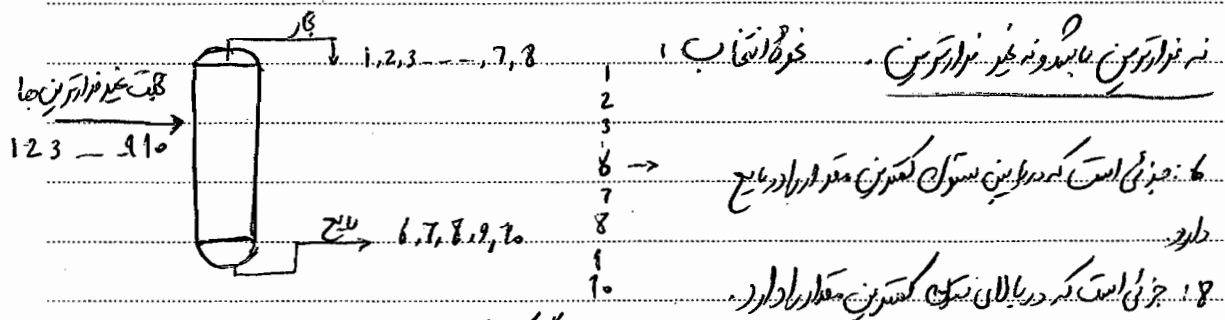 نه فرارترین باشد و نه غیر فرارترین. نحوه انتخاب:
بخار
1,2,3----,7,8
غیر فرارترین ها
1 2 3 _ 9 10
1
2
3
6 →
7
8
9
10
6: جزئی است که در پایین ستون کمترین مقدار را در مایع
دارد.
8: جزئی است که در بالای ستون کمترین مقدار را دارد.
مایع
6,7,8,9,10